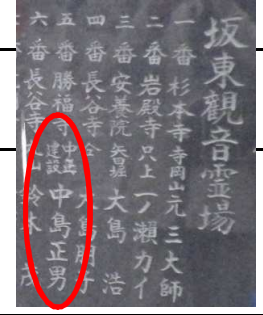 坂東觀音霊場
一番 杉本寺 寺岡山元三大師
二番 岩殿寺 只上 一ノ瀬カイ
三番 安養院 大島 浩
四番 長谷寺 仝 島朋子
五番 勝福寺 中正建設 中島正男
六番 長谷寺 山 鈴木 茂